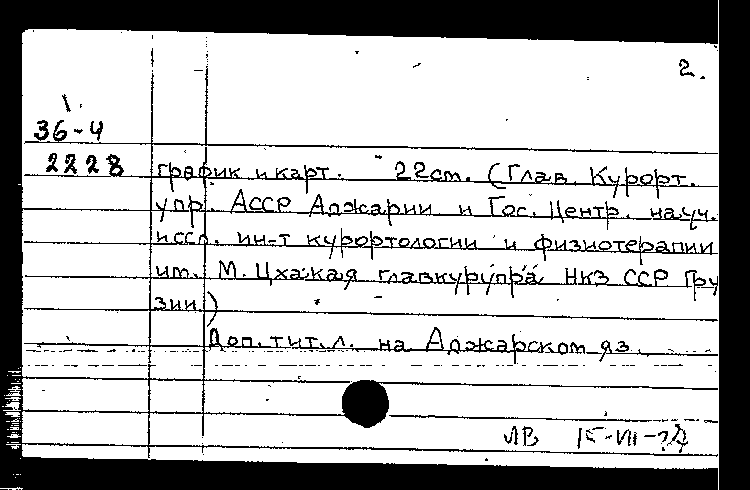 2.
36-4
2228
график и карт. 22см. (Глав. Курорт.
упр. АССР Аджарии и Гос. Центр. науч.
иссл. ин-т курортологии и физиотерапии
им. М. Цхакая главкурупра НКЗ ССР Гру
зии.)
Доп. тит. л. на Аджарском яз.
ЛВ VII